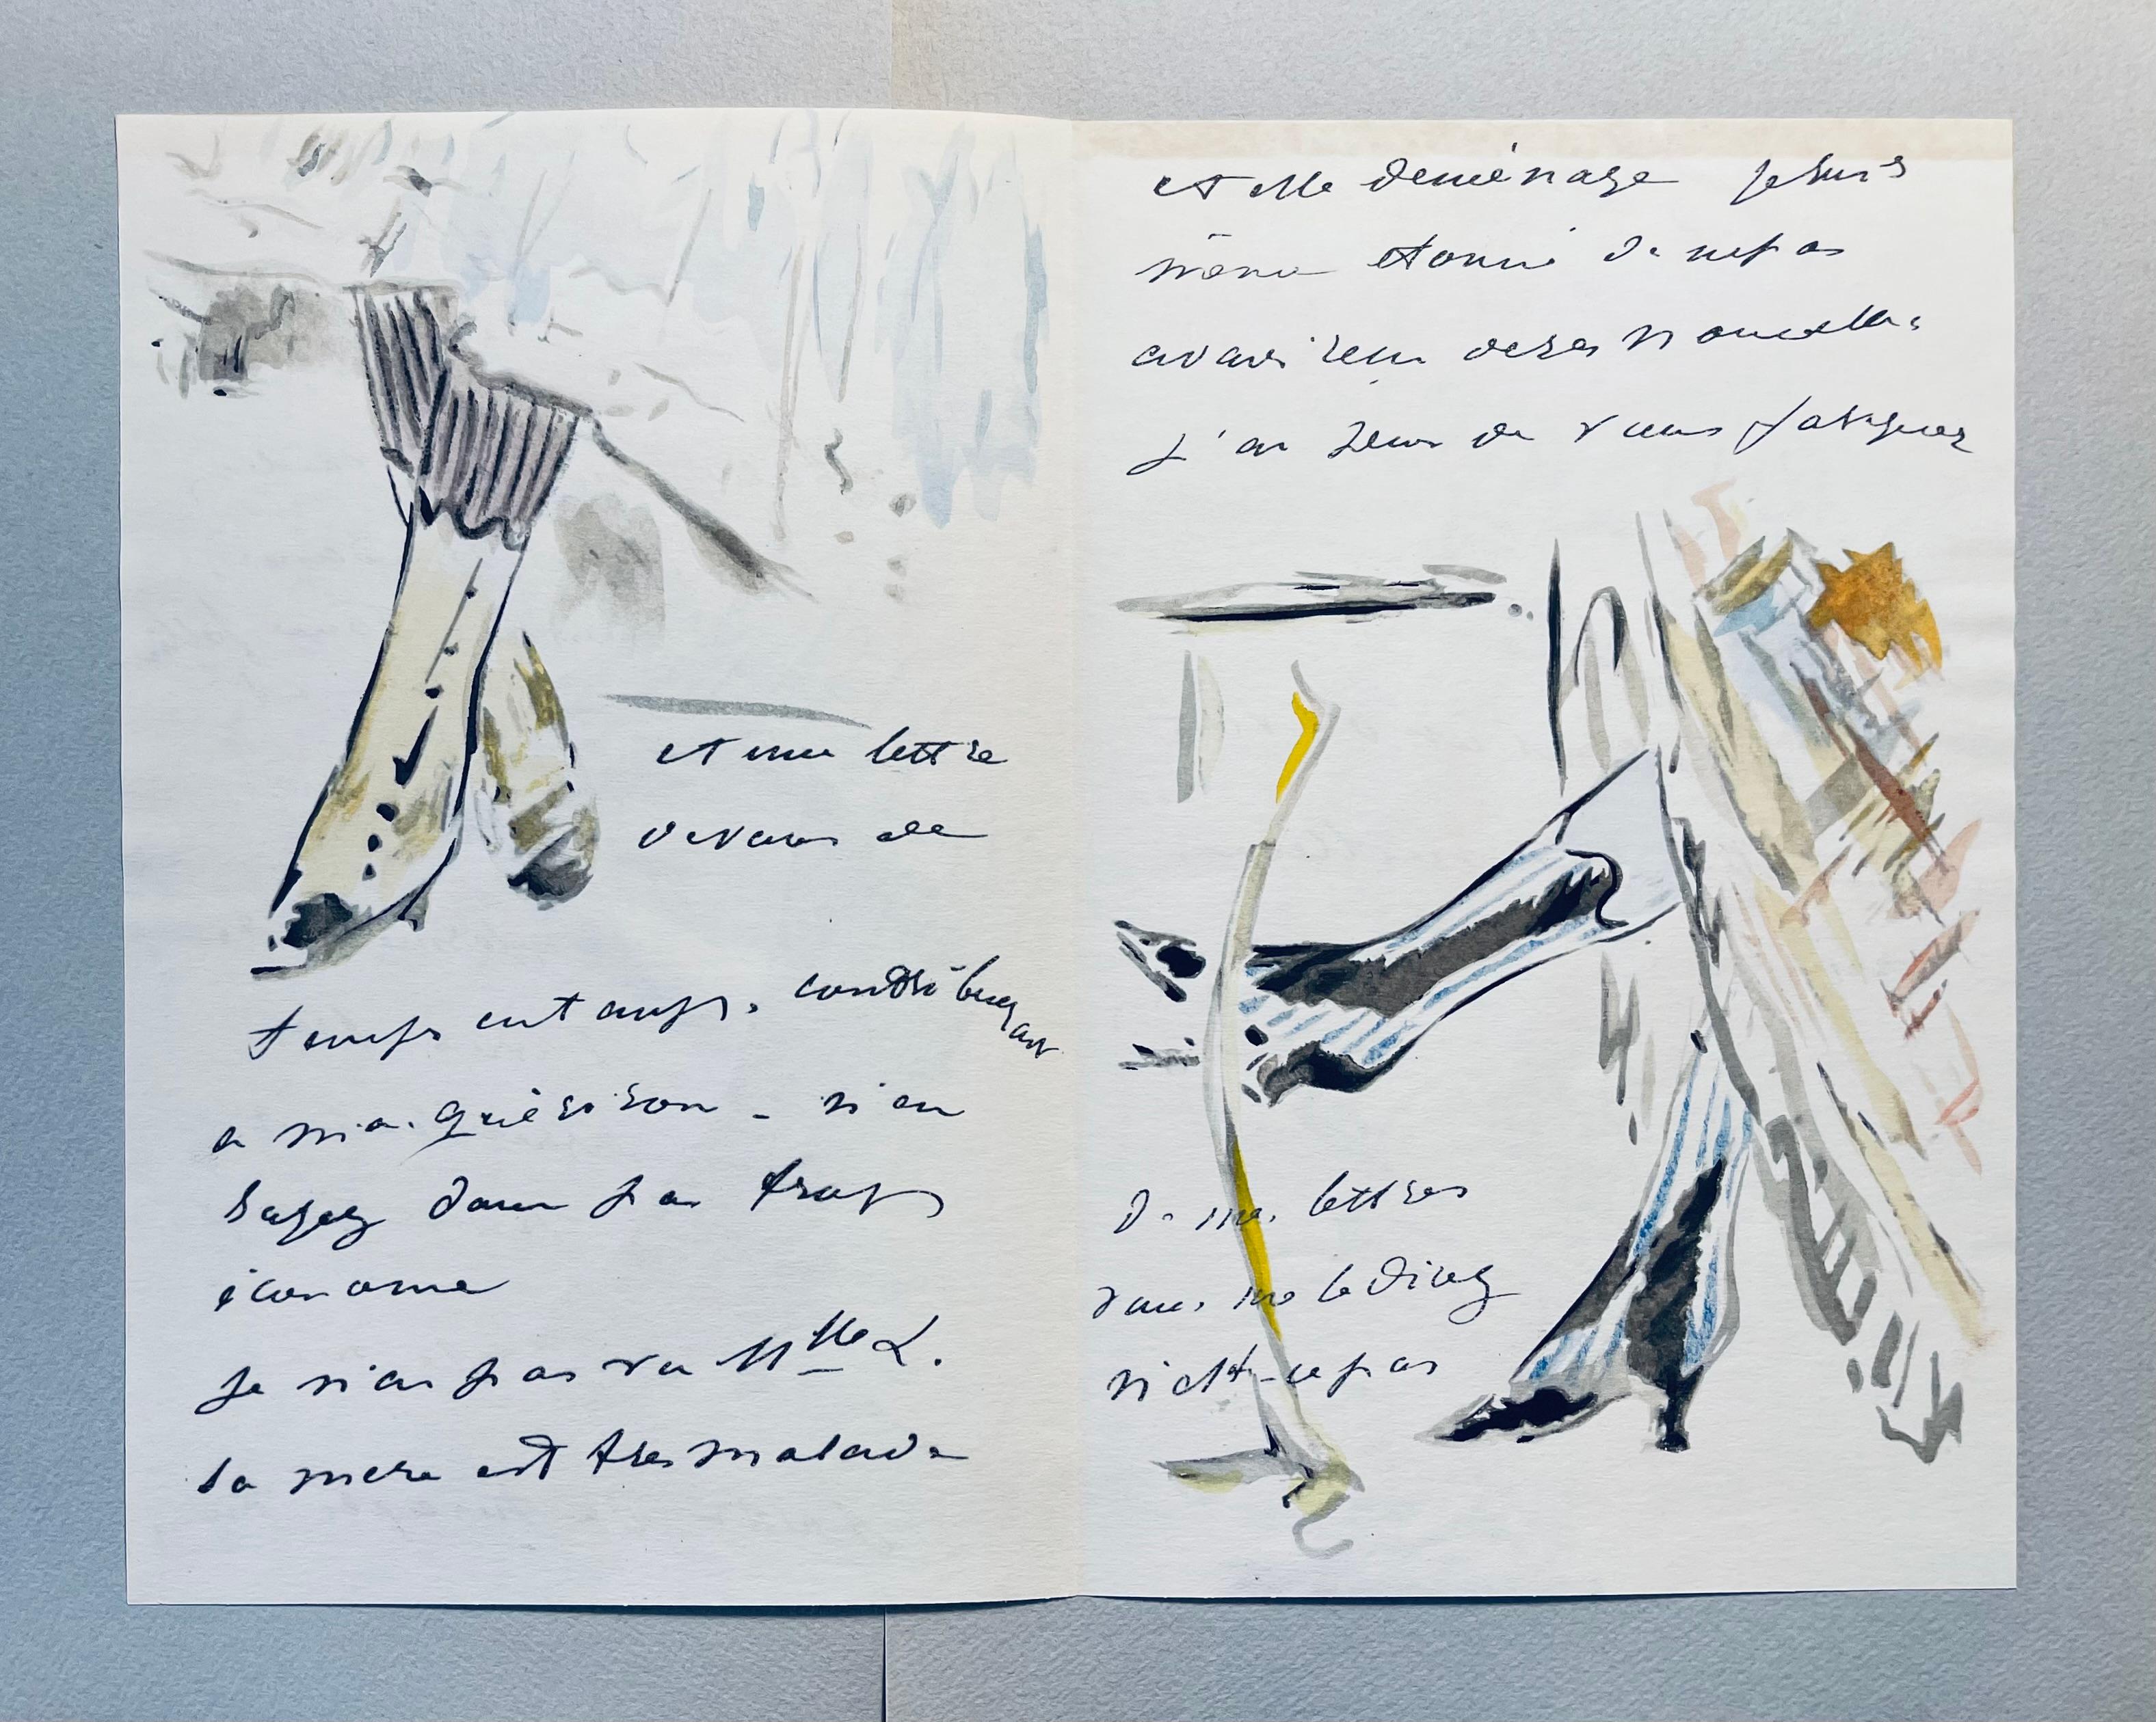 et une lettre
de vous de
temps en temps. contribuer
ait
a ma guérison - n'en
soyez donc pas trop
économe
je n'ai pas vu Mlle L.
sa mere est tres malade
et elle déménage je suis
même etonné de ne pas
avoir reçu de ses nouvelles
j'ai peur de vous fatiguer
de mes lettres
vous me le direz
n'est-ce pas